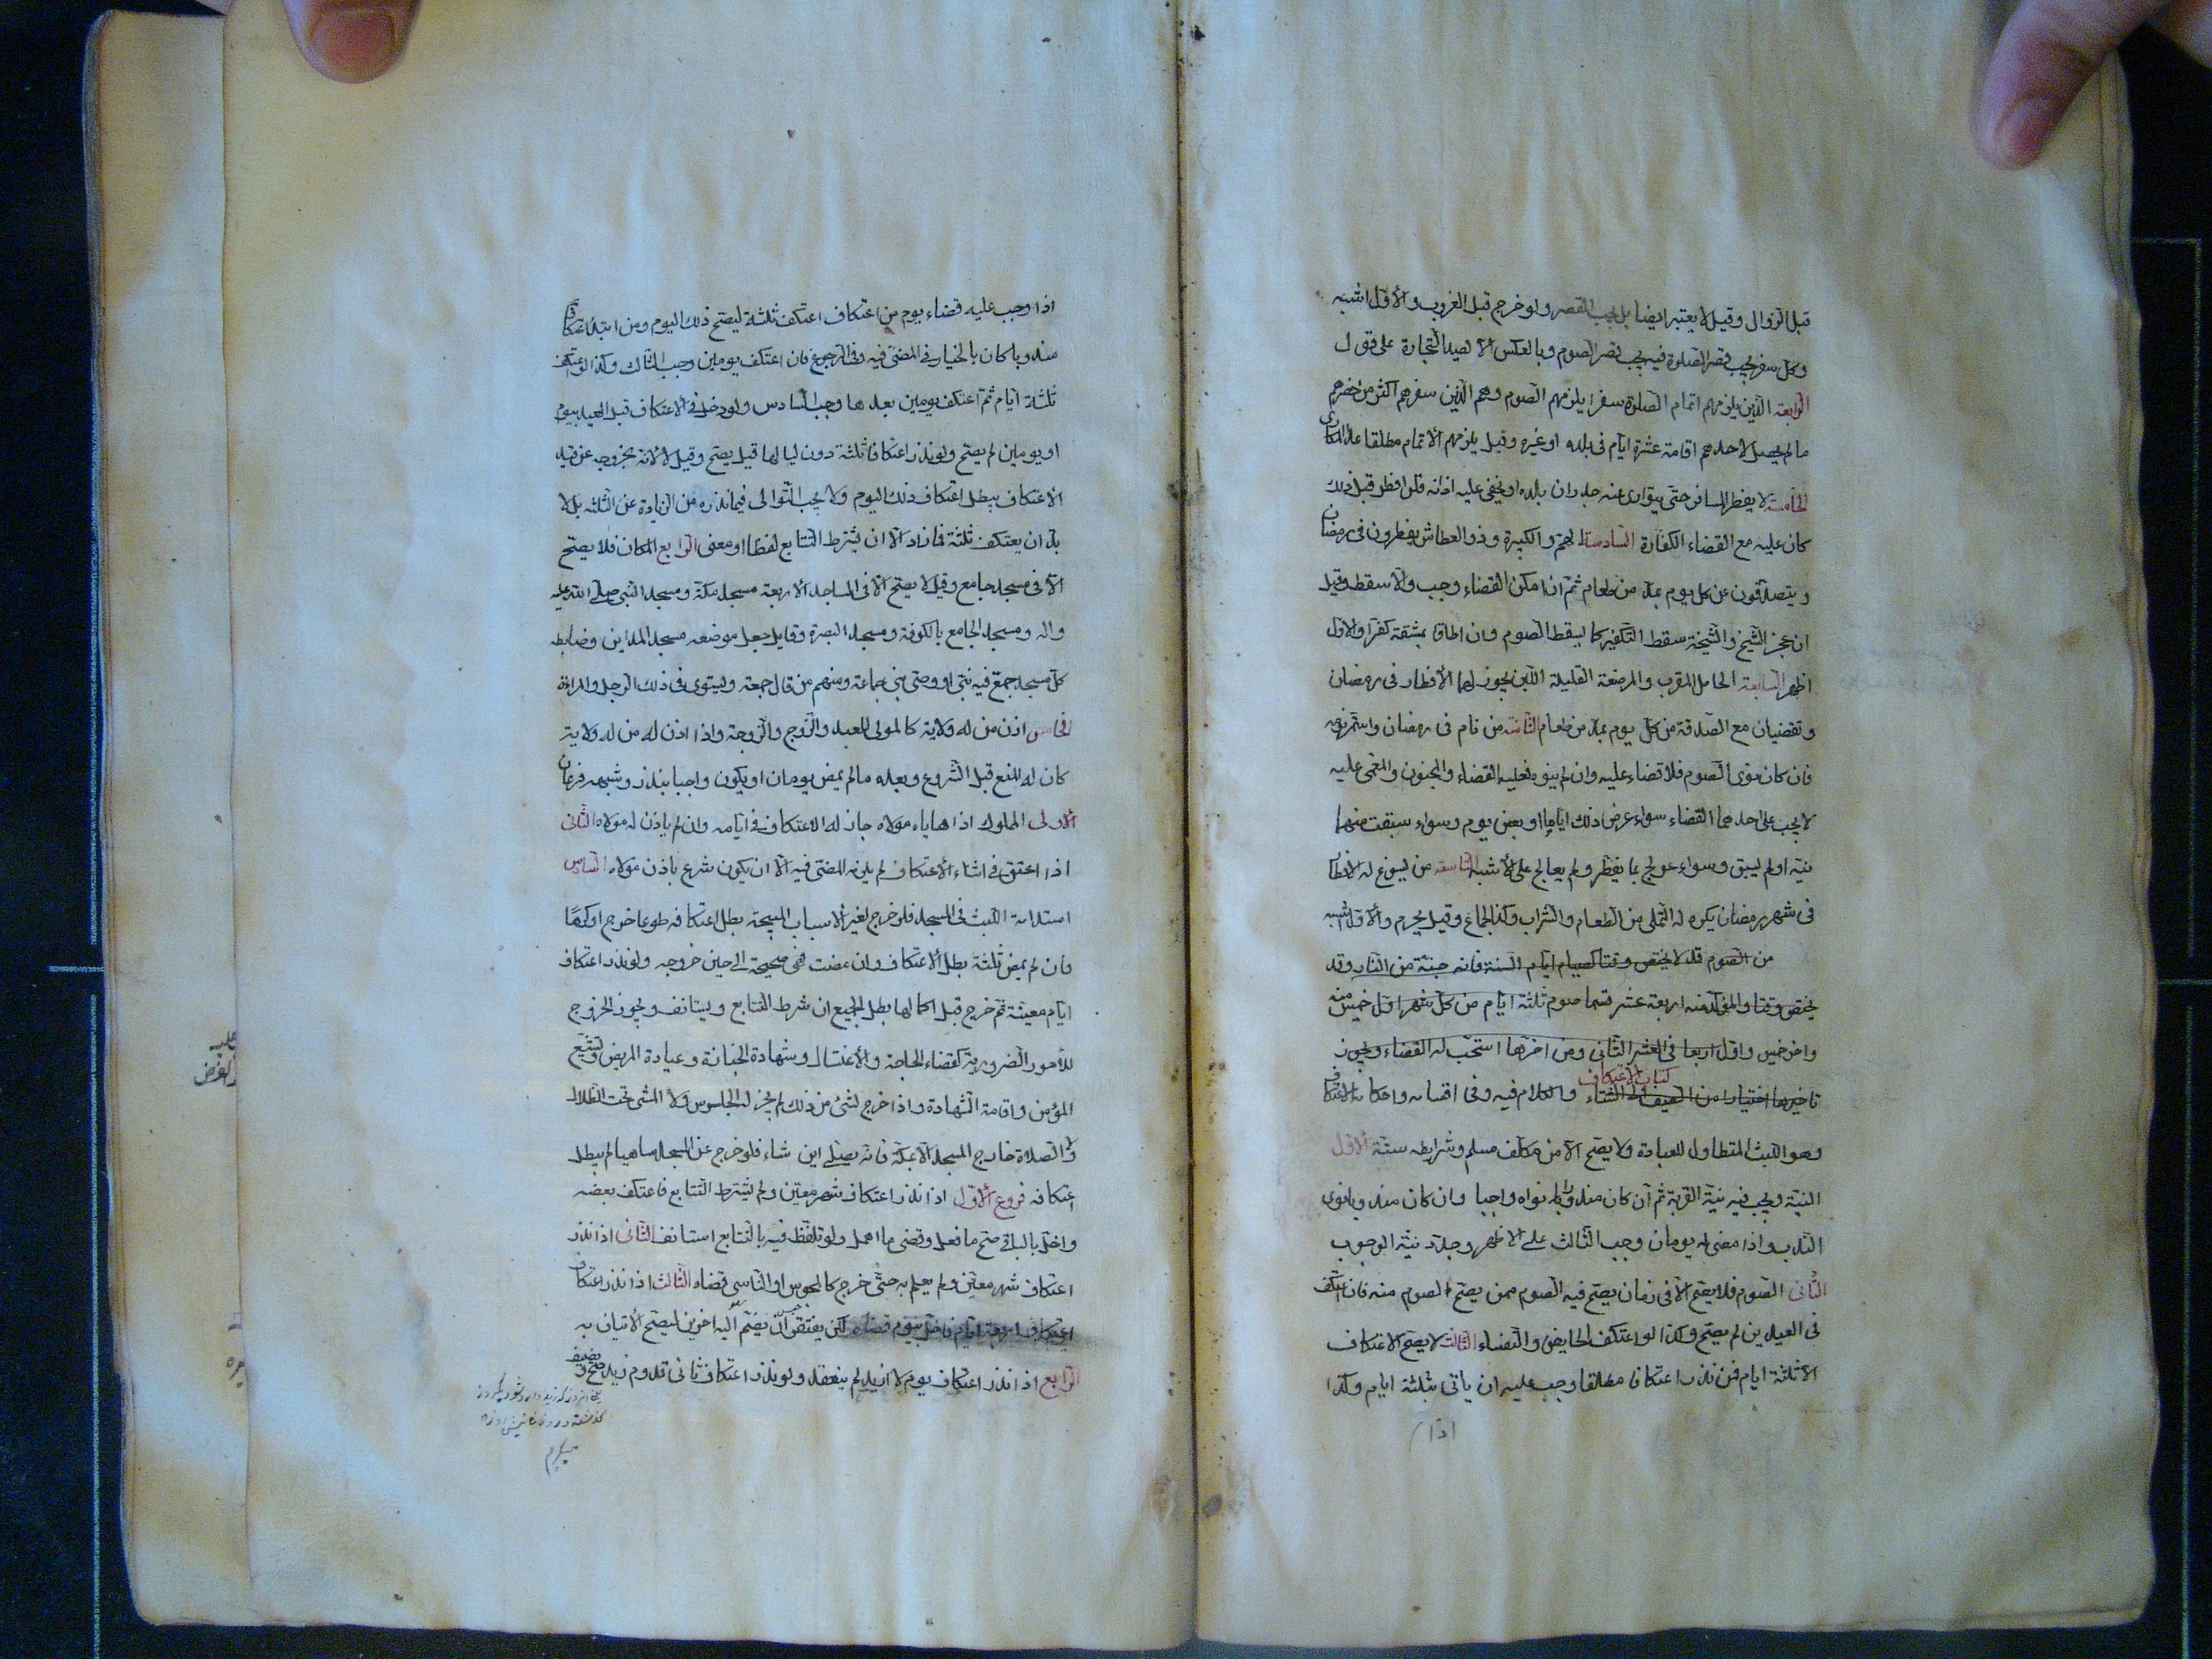 قبل الزوال وقيل لا يعتبر ايضا بل يجب القصر ولو خرج قبل الغروب والأول اشبه
وكل سفر يجب قصر الصلوة فيه يجب قصر الصوم وبالعكس الا لصيد التجارة على قول
الرابعة الذين يلزمهم اتمام الصلوة سفرا يلزمهم الصوم وهم الذين سفرهم اكثر من حضرهم
ما لم يحصل لاحدهم اقامة عشرة ايام فى بلده او غيره وقيل يلزمهم الاتمام مطلقا عدا المكارى
الخامسة لا يفطر المسافر حتى يتوارى عنه جدران بلده او يخفى عليه اذانه فلو افطر قبل ذلك
كان عليه مع القضاء الكفارة السادسة الهم والكبيرة وذو العطاش يفطرون فى رمضان
ويتصدقون عن كل يوم بمد من طعام ثم ان امكن القضاء وجب والا سقط وقيل
ان عجز الشيخ والشيخة سقط التكفير كما يسقط الصوم وان اطاقا بمشقة كفرا والاول
اظهر السابعة الحامل المقرب والمرضعة القليلة اللبن يجوز لهما الافطار فى رمضان
وتقضيان مع الصدقة من كل يوم بمد من طعام الثامنة من نام فى رمضان واستمر نومه
فان كان نوى الصوم فلا قضاء عليه وان لم ينو فعليه القضاء والمجنون والمغمى عليه
لا يجب على احدهما القضاء سواء عرض ذلك اياما او بعض يوم وسواء سبقت منهما
نية او لم يسبق وسواء عولج بما يفطر ولم يعالج على الاشبه التاسعة من يسوغ له الافطار
فى شهر رمضان يكره له التملى من الطعام والشراب وكذا الجماع وقيل يحرم والاول اشبه
من الصوم قد لا يختص وقتا كصيام ايام السنة فانه جنة من النار وقد
يختص وقتا والمؤكد منه اربعة عشر قسما صوم ثلثة ايام من كل شهر اول خميس منه
واخر خميس واول اربعا فى العشر الثانى ومن اخرها استحب له القضاء ويجوز
تاخيرها اختيارا من الصيف الى الشتاء كتاب الاعتكاف والكلام فيه وفى اقسامه واحكامه الاعتكاف
وهو اللبث المتطاول للعبادة ولا يصح الا من مكلف مسلم وشرايطه ستة الاول
النية ويجب فيه نية القربة ثم ان كان منذورا نواه واجبا وان كان مندوبا نوى
الندب واذا مضى له يومان وجب الثالث على الاظهر وجدد نية الوجوب
الثانى الصوم فلا يصح الا فى زمان يصح فيه الصوم ممن يصح الصوم منه فان اعتكف
فى العيدين لم يصح وكذا لو اعتكف الحايض والنفساء الثالث لا يصح الاعتكاف
الا ثلثة ايام فمن نذر اعتكافا مطلقا وجب عليه ان ياتى بثلثة ايام وكذا
اذا
اذا وجب عليه قضاء يوم من اعتكاف اعتكف ثلثة ليصح ذلك اليوم ومن ابتدأ اعتكافا
مندوبا كان بالخيار فى المضى فيه وفى الرجوع فان اعتكف يومين وجب الثالث وكذا لو اعتكف
ثلثة ايام ثم اعتكف يومين بعدها وجب السادس ولو دخل فى الاعتكاف قبل العيد بيوم
او يومين لم يصح ولو نذر اعتكافا ثلثة دون لياليها قيل يصح وقيل لا لانه بخروجه عن قيد
الاعتكاف يبطل اعتكاف ذلك اليوم ولا يجب التوالى فيما نذره من الزيادة عن الثلثة بل لا
بد ان يعتكف ثلثة فما زاد الا ان يشترط التتابع لفظا او معنى الرابع المكان فلا يصح
الا فى مسجد جامع وقيل لا يصح الا فى المساجد الاربعة مسجد مكة ومسجد النبى صلى الله عليه
واله ومسجد الجامع بالكوفة ومسجد البصرة وقايل جعل موضعه مسجد المداين وضابطه
كل مسجد جمع فيه نبى او وصى نبى جماعة ومنهم من قال جمعة ويستوى فى ذلك الرجل والمراءة
الخامس اذن من له ولاية كالمولى للعبد والزوج والزوجة واذا اذن له من له ولاية
كان له المنع قبل الشروع وبعده ما لم يمض يومان او يكون واجبا بنذر وشبهه فرعان
الاولى المملوك اذا هاياه مولاه جاز له الاعتكاف فى ايامه وان لم ياذن له مولاه الثانى
اذا اعتق فى اثناء الاعتكاف لم يلزمه المضى فيه الا ان يكون شرع باذن مولاه السادس
استدامة اللبث فى المسجد فلو خرج لغير الاسباب المبيحة بطل اعتكافه طوعا خرج او كرها
فان لم يمض ثلثة بطل الاعتكاف وان مضت فهى صحيحة الى حين خروجه ولو نذر اعتكاف
ايام معينة ثم خرج قبل اكمالها بطل الجميع ان شرط التتابع ويستانف ويجوز الخروج
للأمور الضرورية كقضاء الحاجة والاغتسال وشهادة الجنازة وعيادة المريض وتشييع
المؤمن واقامة الشهادة واذا خرج لشئ من ذلك لم يجز له الجلوس ولا المشى تحت الظلال
ولا الصلاة خارج المسجد الا بمكة فانه يصلى اين شاء فلو خرج عن المسجد ساهيا لم يبطل
اعتكافه فروع الاول اذا نذر اعتكاف شهر معين ولم يشترط التتابع فاعتكف بعضه
واخل بالباقى صح ما فعل وقضى ما اهمل ولو تلفظ فيه بالتتابع استانف الثانى اذا نذر
اعتكاف شهر معين ولم يعلم به حتى خرج كالمحبوس او الناسى قضاه الثالث اذا نذر اعتكاف
اعتكاف اربعة ايام فاخل بيوم قضاه لكن يفتقر ان يضم اليه اخرين ليصح الاتيان به
الرابع اذا نذر اعتكاف يوم لا ازيد لم ينعقد ولو نذر اعتكاف ثانى قدوم زيد صح ويضيف